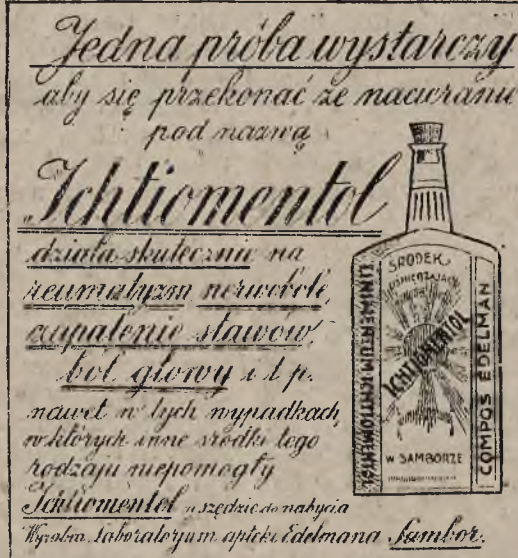 Jedna próba wystarczy
aby się przekonać że nacieranie
pod nazwą
Ichtiomentol
działa skutecznie na
reumatyzm nerwobole,
zapalenie stawów,
ból głowy i t p.
nawet w tych wypadkach,
w których inne środki tego
rodzaju niepomogły
Ichtiomentol wszędzie do nabycia
Wyrabia Laboratoryum apteki Edelmana Sambor.
ŚRODEK
UŚMIERZAJĄCY
ICHTIOMENTOL
w SAMBORZE
LINIMENTUM ICHTIOMENTOL
COMPOS EDELMAN